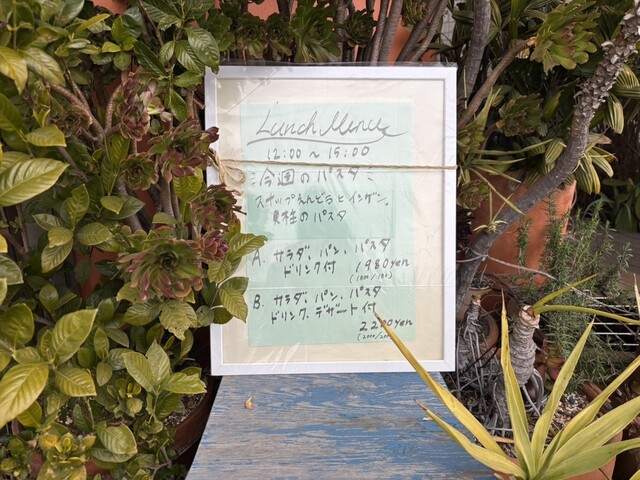 Lunch Menu
12:00 〜 15:00
今週のパスタ
スナップえんどうとインゲン、
のパスタ
A. サラダ、パン、パスタ
ドリンク付 1980yen
B. サラダ、パン、パスタ
ドリンク、デザート付
2200yen